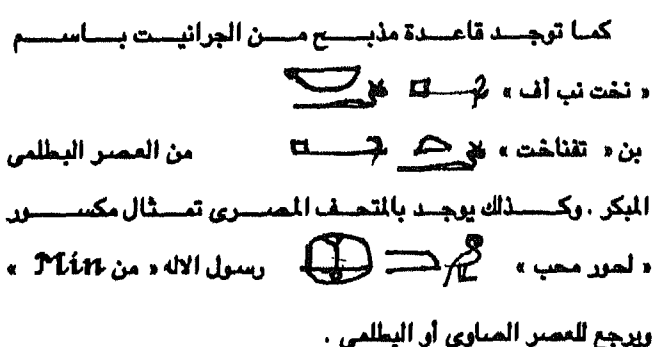 كما توجد قاعدة مذبح من الجرانيت باسم
« نخت نب أف »
بن « تفناخت » من العصر البطلمى
المبكر . وكذلك يوجد بالمتحف المصرى تمثال مكسور
« لحور محب » رسول الاله « من Min »
ويرجع للعصر الصاوى أو البطلمى .